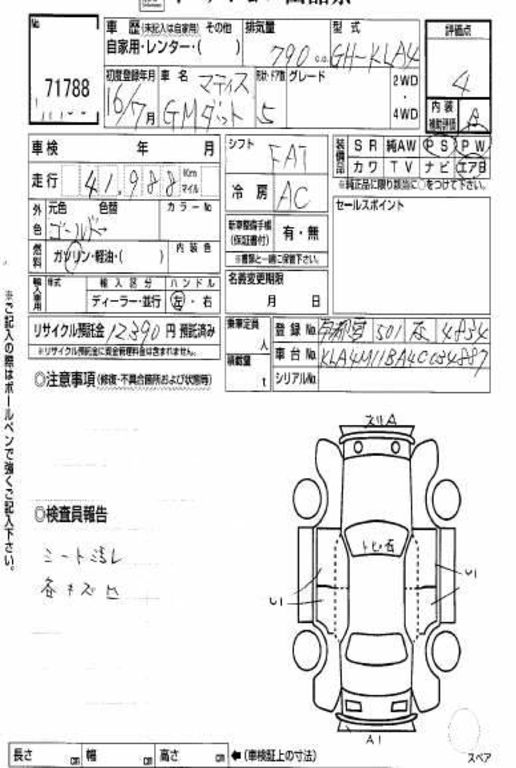 No.
71788
車 歴 (未記入は自家用) その他
自家用・レンター・( )
排気量
790 c.c.
型 式
GH-KLA4
評価点
4
初度登録年月
16/7月
車 名
マティス
GMダット
形状・ドア数
5
グレード
2WD
・
4WD
内 装
補助評価
B
車検 年 月
走行 41,988 Km マイル
外色
元色 色替
カラーNo
ゴールド
燃料
ガソリン・軽油・( )
内 装 色
輸入車用
年式
輸 入 区 分
ディーラー・並行
ハ ン ド ル
左・右
リサイクル預託金 12390 円 預託済み
※リサイクル預託金に資金管理料金は含まれません。
シフト
FAT
冷 房
AC
新車整備手帳
(保証書付)
有・無
※書類と一緒に保管下さい。
名義変更期限
月 日
装備品
SR 純AW PS PW
カワ TV ナビ エアB
※純正品に限り該当に○をつけて下さい。
セールスポイント
乗車定員
人
積載量
t
登 録 No. 宇都宮 501 4834
車 台 No. KLA4M11BA4C034887
シリアルNo.
◎注意事項 (修復・不具合箇所および状態等)
※ご記入の際はボールペンで強くご記入下さい。
◎検査員報告
シート汚レ
各キズ凹
スリA
トビ石
A1
スペア
長さ cm 幅 cm 高さ cm ←(車検証上の寸法)